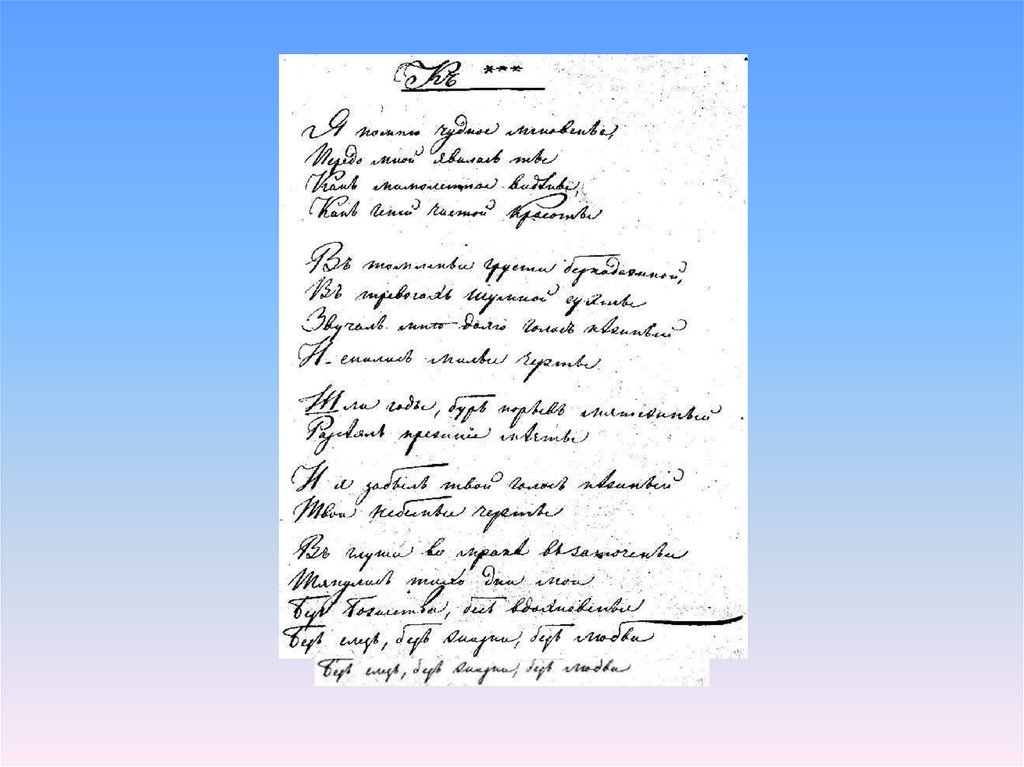 Къ ***
Я помню чудное мгновенье,
Передо мной явилась ты
Какъ мимолетное видѣнье,
Какъ геній чистой красоты
Въ томленьи грусти безнадежной,
Въ тревогахъ шумной суеты
Звучалъ мнѣ долго голосъ нѣжный
И снились милые черты
Шли годы, бурь порывъ мятежный
Разсѣялъ прежніе мечты
И я забылъ твой голосъ нѣжный
Твои небесные черты
Въ глуши во мракѣ въ заточеньи
Тянулись тихо дни мои
Безъ божества, безъ вдохновенья
Безъ слезъ, безъ жизни, безъ любви
Безъ слезъ, безъ жизни, безъ любви